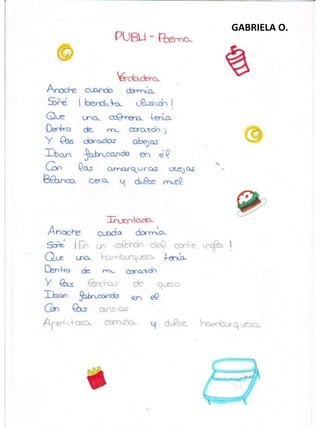 GABRIELA O.
PUBLI-Poema
Verdadera
Anoche cuando dormía
Soñé ¡bendita ilusión!
Que una colmena tenía
Dentro de mi corazón;
Y las doradas abejas
Iban fabricando en él
Con las amarguras viejas
Blanca cera y dulce miel
Inventada
Anoche cuado dormía
Soñé ¡En un colchón del corte inglés!
Que una hamburguesa tenía
Dentro de mi corazón
Y las lonchas de queso
Iban fabricando en él
Con las ansias
Apetitosa comida y dulce hamburguesa